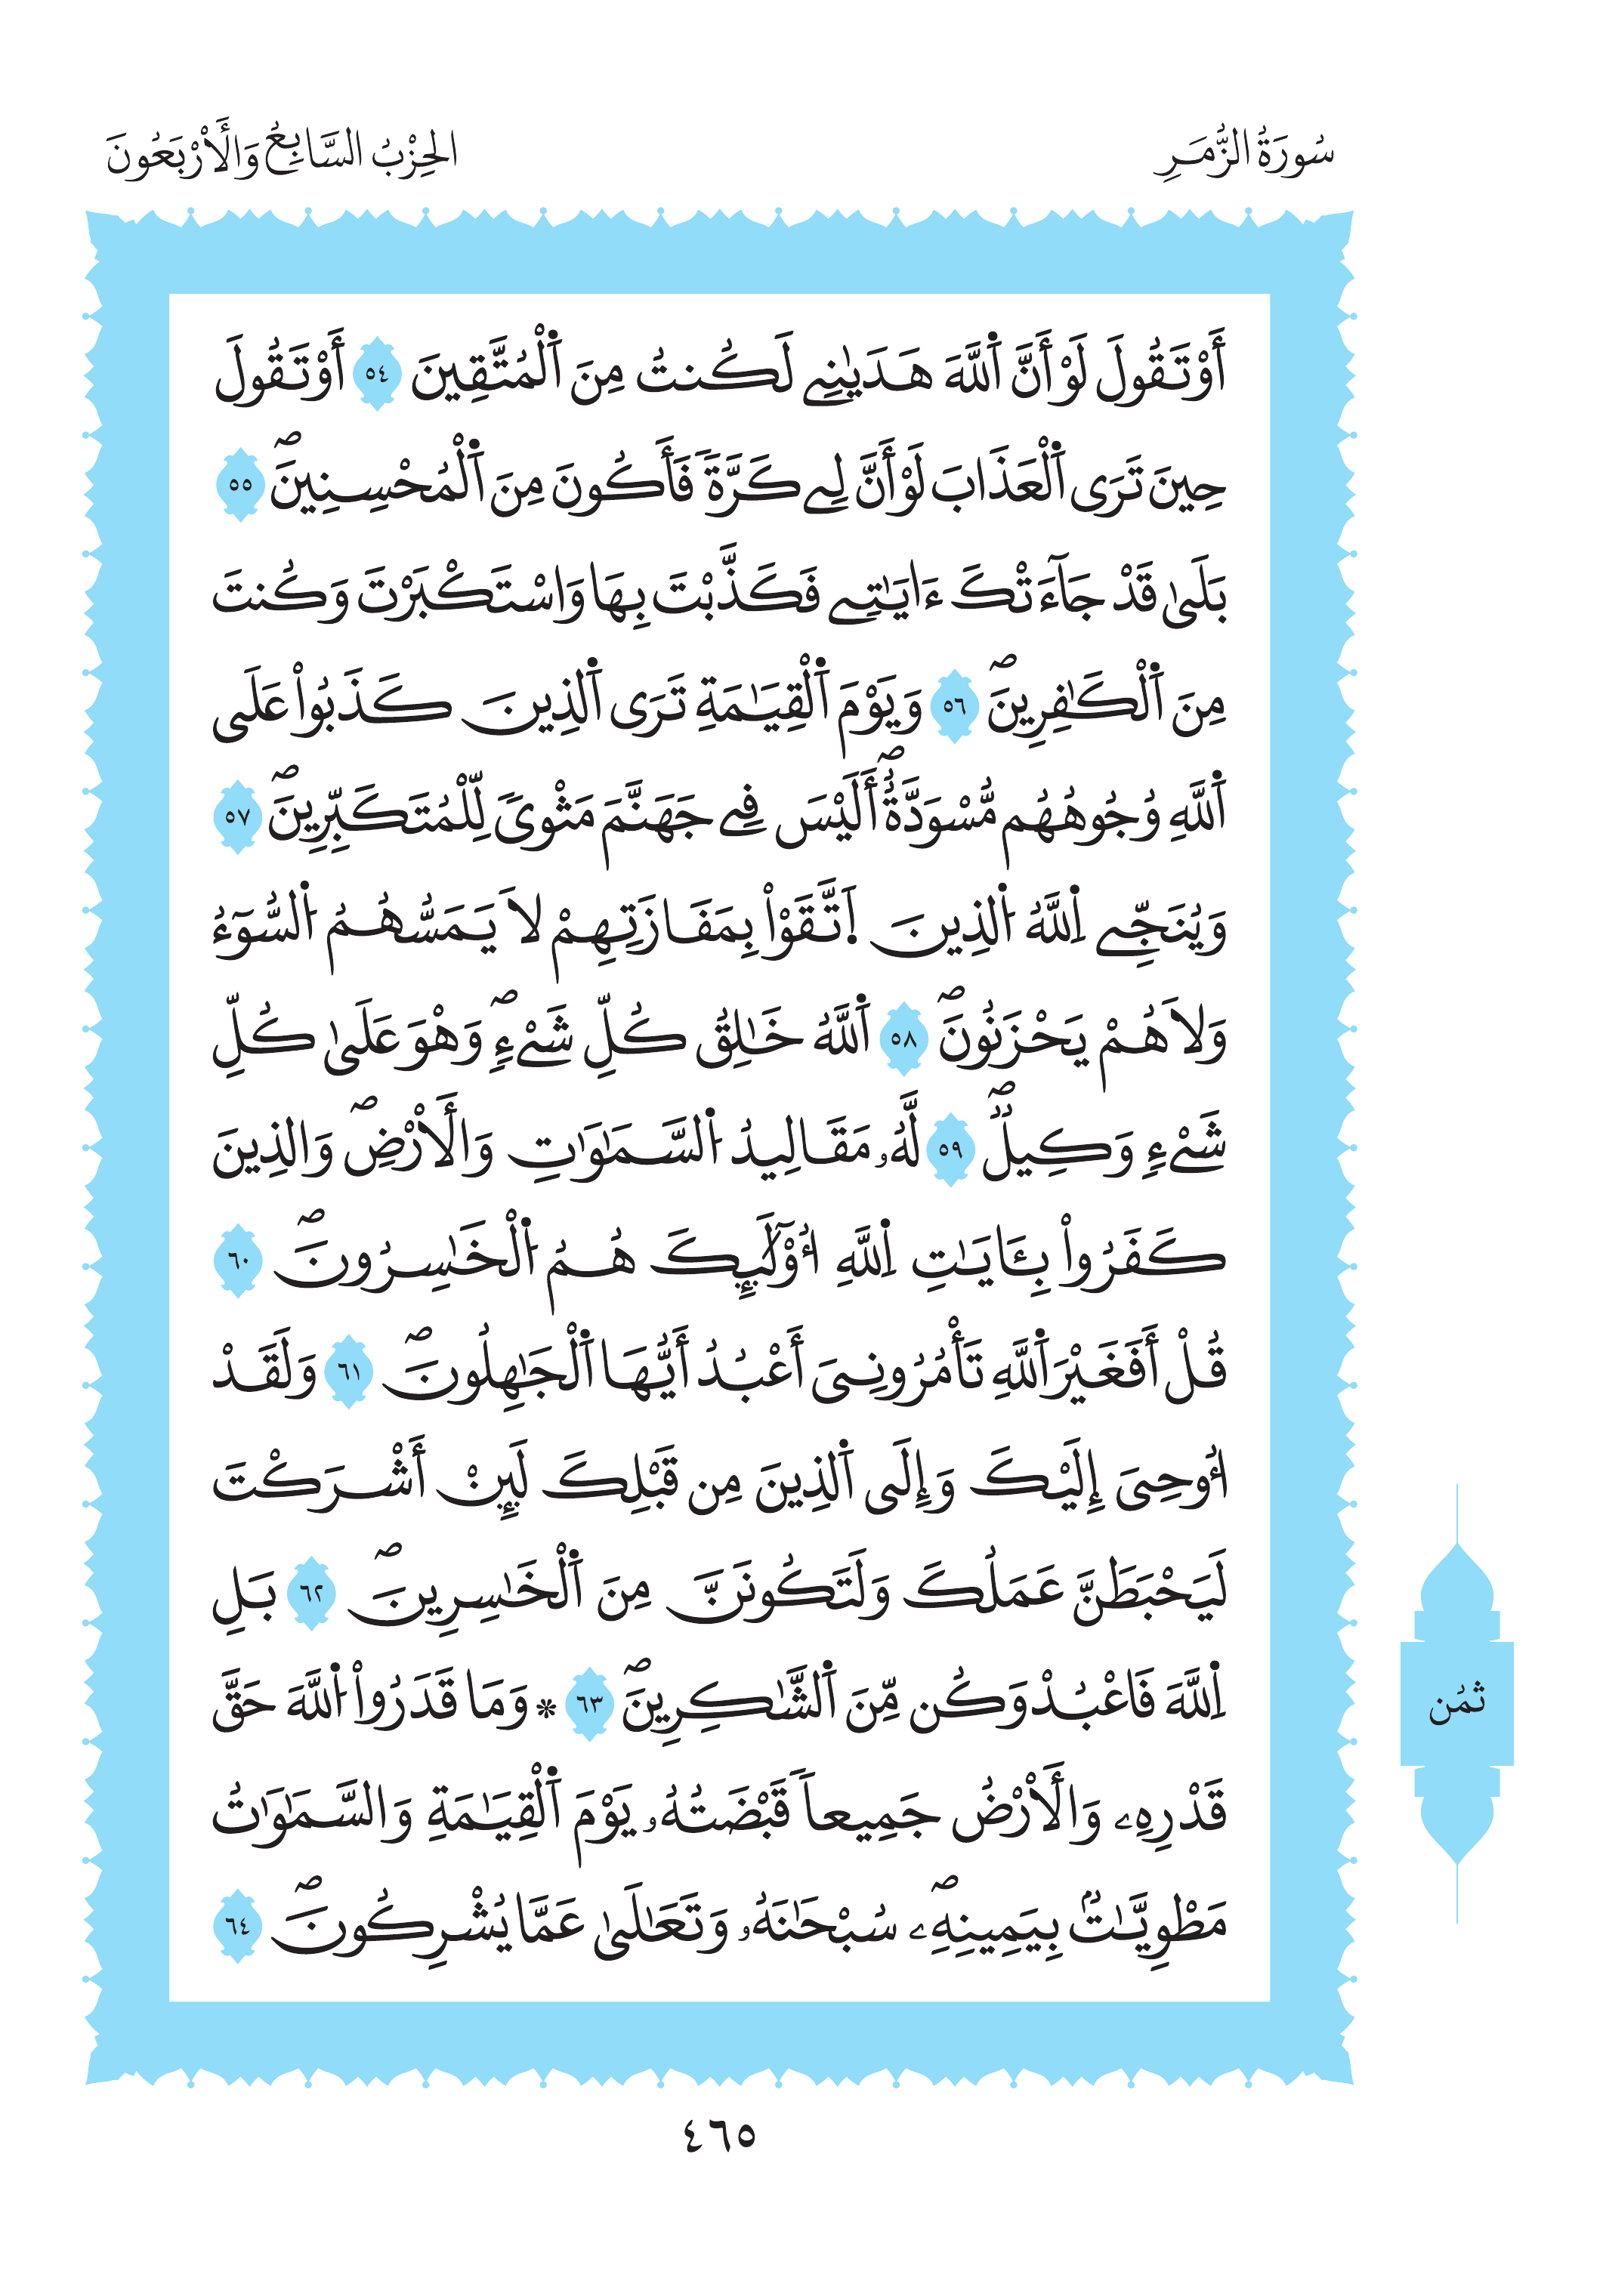 سُورَةُ الزُّمَرِ
الحِزْبُ السَّابِعُ وَالأَرْبَعُونَ
أَوْ تَقُولَ لَوْ أَنَّ اَ۬للَّهَ هَدَيٰنِے لَكُنتُ مِنَ اَ۬لْمُتَّقِينَ ٥٤ أَوْ تَقُولَ
حِينَ تَرَى اَ۬لْعَذَابَ لَوْ أَنَّ لِے كَرَّةٗ فَأَكُونَ مِنَ اَ۬لْمُحْسِنِينَۖ ٥٥
بَلَىٰ قَدْ جَآءَتْكَ ءَايَٰتِے فَكَذَّبْتَ بِهَا وَاسْتَكْبَرْتَ وَكُنتَ
مِنَ اَ۬لْكَٰفِرِينَۖ ٥٦ وَيَوْمَ اَ۬لْقِيَٰمَةِ تَرَى اَ۬لذِينَ كَذَبُواْ عَلَى
اَ۬للَّهِ وُجُوهُهُم مُّسْوَدَّةٌۖ أَلَيْسَ فِے جَهَنَّمَ مَثْوىٗ لِّلْمُتَكَبِّرِينَۖ ٥٧
وَيُنَجِّے اِ۬للَّهُ اُ۬لذِينَ اَ۪تَّقَوْاْ بِمَفَازَتِهِمْ لَا يَمَسُّهُمُ اُ۬لسُّوٓءُ
وَلَا هُمْ يَحْزَنُونَۖ ٥٨ اَ۬للَّهُ خَٰلِقُ كُلِّ شَےْءٖۖ وَهْوَ عَلَىٰ كُلِّ
شَےْءٖ وَكِيلٞۖ ٥٩ لَّهُۥ مَقَالِيدُ اُ۬لسَّمَٰوَٰتِ وَالْأَرْضِۖ وَالذِينَ
كَفَرُواْ بِـَٔايَٰتِ اِ۬للَّهِ أُوْلَٰٓئِكَ هُمُ اُ۬لْخَٰسِرُونَۖ ٦٠
قُلْ أَفَغَيْرَ اَ۬للَّهِ تَأْمُرُونِيَ أَعْبُدُ أَيُّهَا اَ۬لْجَٰهِلُونَۖ ٦١ وَلَقَدْ
أُوحِيَ إِلَيْكَ وَإِلَى اَ۬لذِينَ مِن قَبْلِكَ لَئِنْ أَشْرَكْتَ
لَيَحْبَطَنَّ عَمَلُكَ وَلَتَكُونَنَّ مِنَ اَ۬لْخَٰسِرِينَۖ ٦٢ بَلِ
اِ۬للَّهَ فَاعْبُدْ وَكُن مِّنَ اَ۬لشَّٰكِرِينَۖ ٦٣ * وَمَا قَدَرُواْ اُ۬للَّهَ حَقَّ
قَدْرِهِۦ وَالْأَرْضُ جَمِيعاٗ قَبْضَتُهُۥ يَوْمَ اَ۬لْقِيَٰمَةِ وَالسَّمَٰوَٰتُ
مَطْوِيَّٰتُۢ بِيَمِينِهِۦۖ سُبْحَٰنَهُۥ وَتَعَٰلَىٰ عَمَّا يُشْرِكُونَۖ ٦٤
ثمُن
٤٦٥